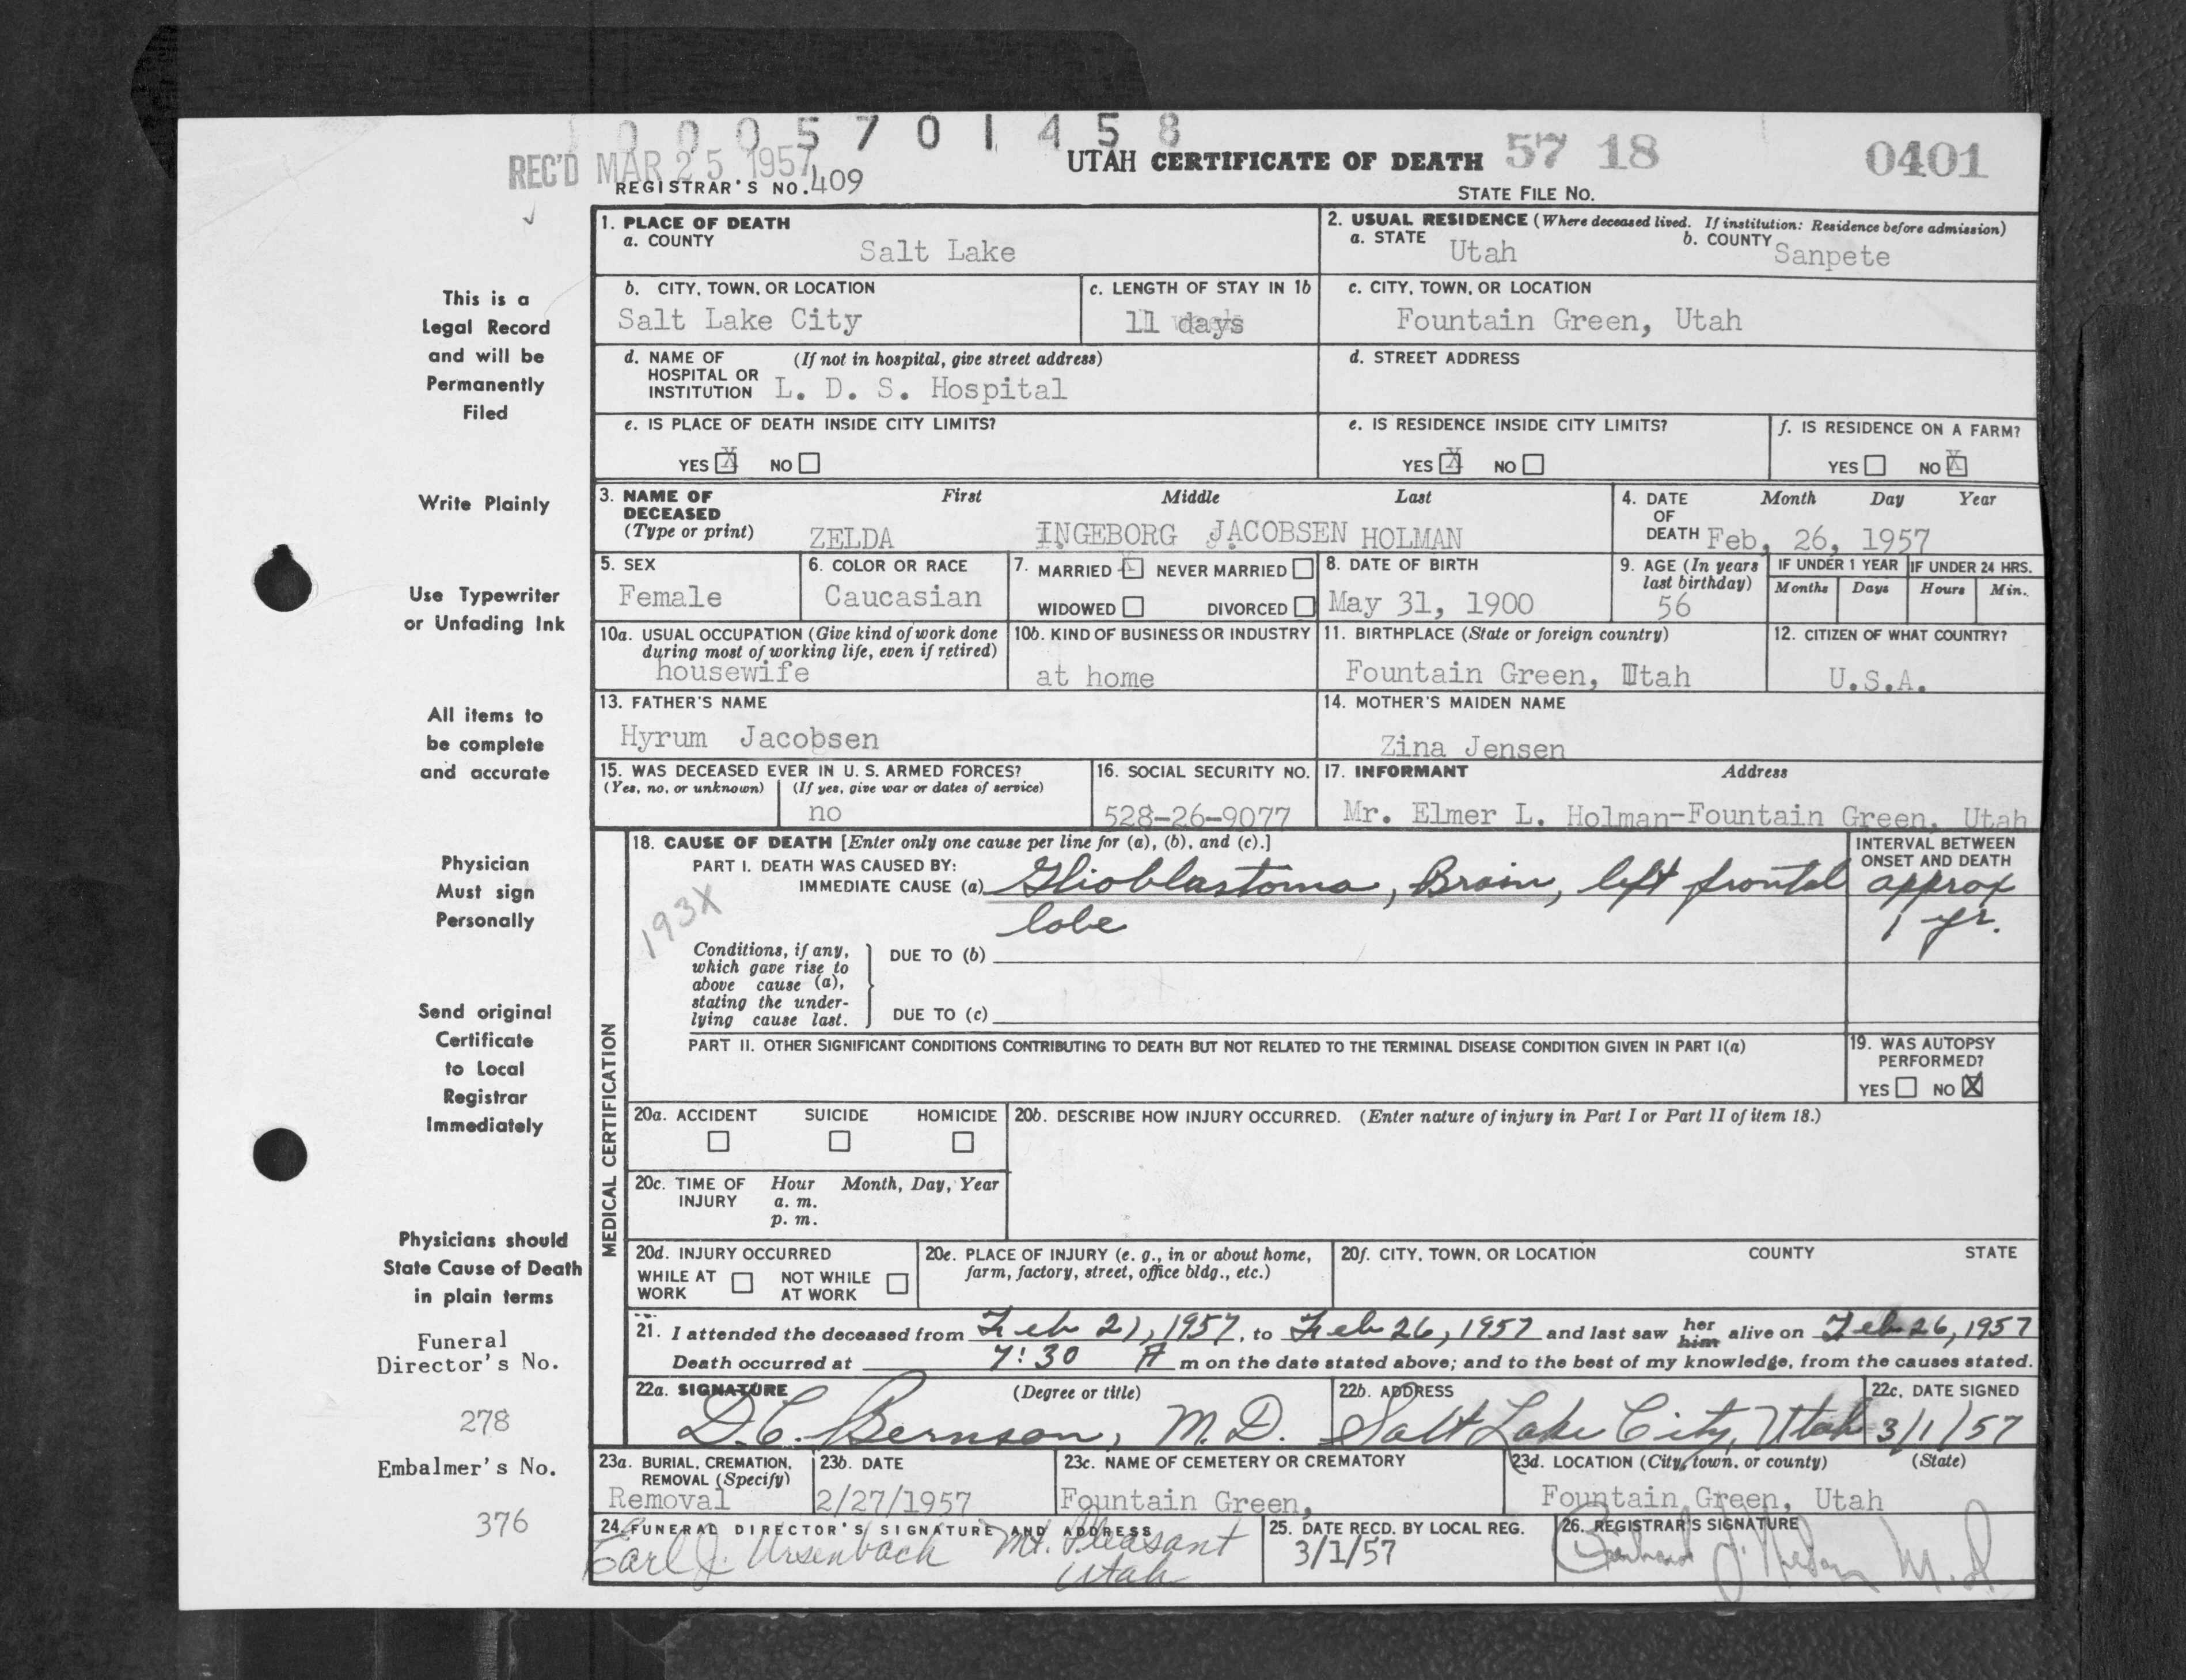 1 0 0 0 5 7 0 1 4 5 8
REC'D MAR 25 1957
REGISTRAR'S NO. 409
UTAH CERTIFICATE OF DEATH 57 18 0401
STATE FILE NO.
1. PLACE OF DEATH
a. COUNTY Salt Lake
2. USUAL RESIDENCE (Where deceased lived. If institution: Residence before admission)
a. STATE Utah b. COUNTY Sanpete
b. CITY, TOWN, OR LOCATION Salt Lake City
c. LENGTH OF STAY IN 1b 11 days
c. CITY, TOWN, OR LOCATION Fountain Green, Utah
d. NAME OF HOSPITAL OR INSTITUTION (If not in hospital, give street address) L. D. S. Hospital
d. STREET ADDRESS
e. IS PLACE OF DEATH INSIDE CITY LIMITS?
YES X NO
e. IS RESIDENCE INSIDE CITY LIMITS?
YES X NO
f. IS RESIDENCE ON A FARM?
YES NO X
3. NAME OF DECEASED (Type or print)
First Middle Last
ZELDA INGEBORG JACOBSEN HOLMAN
4. DATE OF DEATH Month Day Year
Feb. 26, 1957
5. SEX Female
6. COLOR OR RACE Caucasian
7. MARRIED X NEVER MARRIED
WIDOWED DIVORCED
8. DATE OF BIRTH May 31, 1900
9. AGE (In years last birthday) 56
IF UNDER 1 YEAR Months Days
IF UNDER 24 HRS. Hours Min.
10a. USUAL OCCUPATION (Give kind of work done during most of working life, even if retired)
housewife
10b. KIND OF BUSINESS OR INDUSTRY
at home
11. BIRTHPLACE (State or foreign country)
Fountain Green, Utah
12. CITIZEN OF WHAT COUNTRY?
U.S.A.
13. FATHER'S NAME
Hyrum Jacobsen
14. MOTHER'S MAIDEN NAME
Zina Jensen
15. WAS DECEASED EVER IN U. S. ARMED FORCES?
(Yes, no, or unknown) (If yes, give war or dates of service)
no
16. SOCIAL SECURITY NO.
528-26-9077
17. INFORMANT Address
Mr. Elmer L. Holman-Fountain Green, Utah
MEDICAL CERTIFICATION
18. CAUSE OF DEATH [Enter only one cause per line for (a), (b), and (c).]
PART I. DEATH WAS CAUSED BY:
IMMEDIATE CAUSE (a) Glioblastoma, Brain, left frontal
lobe
193X
INTERVAL BETWEEN ONSET AND DEATH
approx
1 yr.
Conditions, if any, which gave rise to above cause (a), stating the underlying cause last.
DUE TO (b)
DUE TO (c)
PART II. OTHER SIGNIFICANT CONDITIONS CONTRIBUTING TO DEATH BUT NOT RELATED TO THE TERMINAL DISEASE CONDITION GIVEN IN PART I(a)
19. WAS AUTOPSY PERFORMED?
YES NO X
20a. ACCIDENT SUICIDE HOMICIDE
20b. DESCRIBE HOW INJURY OCCURRED. (Enter nature of injury in Part I or Part II of item 18.)
20c. TIME OF INJURY Hour Month, Day, Year
a. m.
p. m.
20d. INJURY OCCURRED
WHILE AT WORK NOT WHILE AT WORK
20e. PLACE OF INJURY (e. g., in or about home, farm, factory, street, office bldg., etc.)
20f. CITY, TOWN, OR LOCATION COUNTY STATE
21. I attended the deceased from Feb 21, 1957, to Feb 26, 1957 and last saw her him alive on Feb 26, 1957
Death occurred at 7:30 A m on the date stated above; and to the best of my knowledge, from the causes stated.
22a. SIGNATURE (Degree or title)
D.C. Bernson, M.D.
22b. ADDRESS
Salt Lake City, Utah
22c. DATE SIGNED
3/1/57
23a. BURIAL, CREMATION, REMOVAL (Specify)
Removal
23b. DATE
2/27/1957
23c. NAME OF CEMETERY OR CREMATORY
Fountain Green,
23d. LOCATION (City, town, or county) (State)
Fountain Green, Utah
24. FUNERAL DIRECTOR'S SIGNATURE AND ADDRESS
Earl J. Ursenbach Mt. Pleasant
Utah
25. DATE RECD. BY LOCAL REG.
3/1/57
26. REGISTRAR'S SIGNATURE
M.D.
This is a
Legal Record
and will be
Permanently
Filed
Write Plainly
Use Typewriter
or Unfading Ink
All items to
be complete
and accurate
Physician
Must sign
Personally
Send original
Certificate
to Local
Registrar
Immediately
Physicians should
State Cause of Death
in plain terms
Funeral
Director's No.
278
Embalmer's No.
376